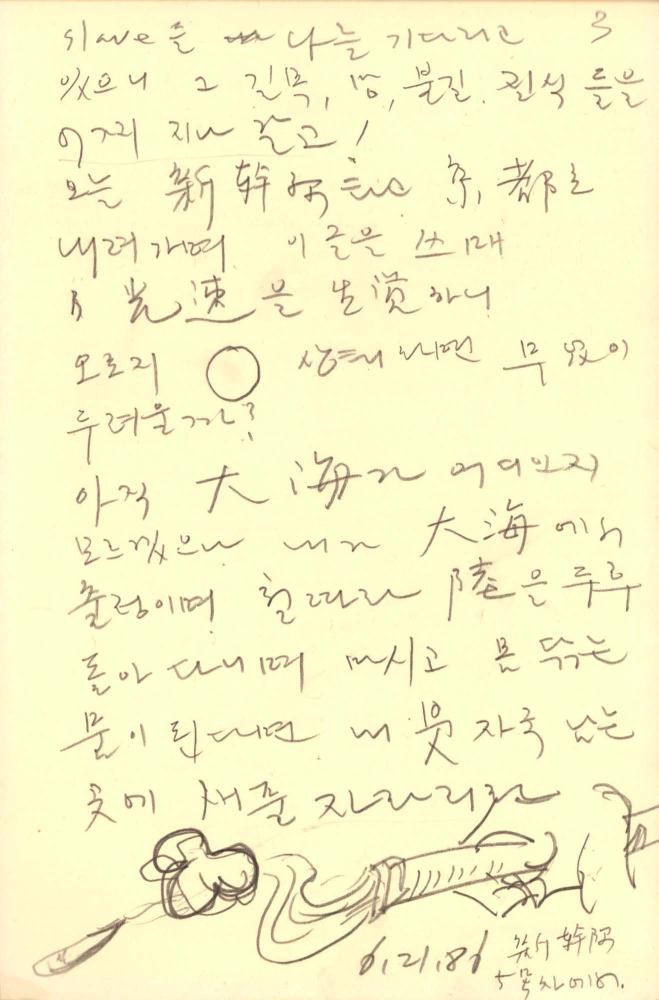 slave들 나를 기다리고 3
있으니 그 길목, 땅, 불길. 질식 들을
어찌 지나 갈고!
오늘 新幹線 京都로
내려가며 이 글을 쓰매
光速을 生覺하니
오로지 ○ 상태라면 무엇이
두려울까?
아직 大海가 어디인지
모르겠으나 내가 大海에서
출렁이며 철따라 陸을 두루
돌아 다니며 마시고 몸 닦는
물이 된다면 내 붓자국 남는
곳에 새풀 자라리라
6.21.86 新幹線
차에서.